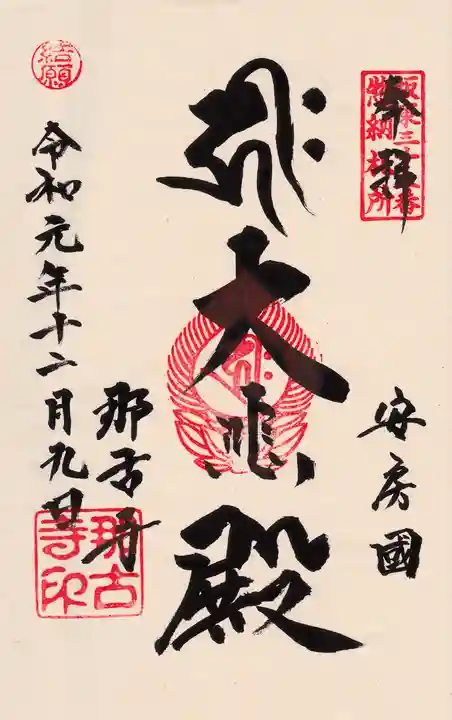 奉拝
坂東三十三番
惣納札所
安房國
大悲殿
那古寺
令和元年十二月九日
結願
那古
寺印